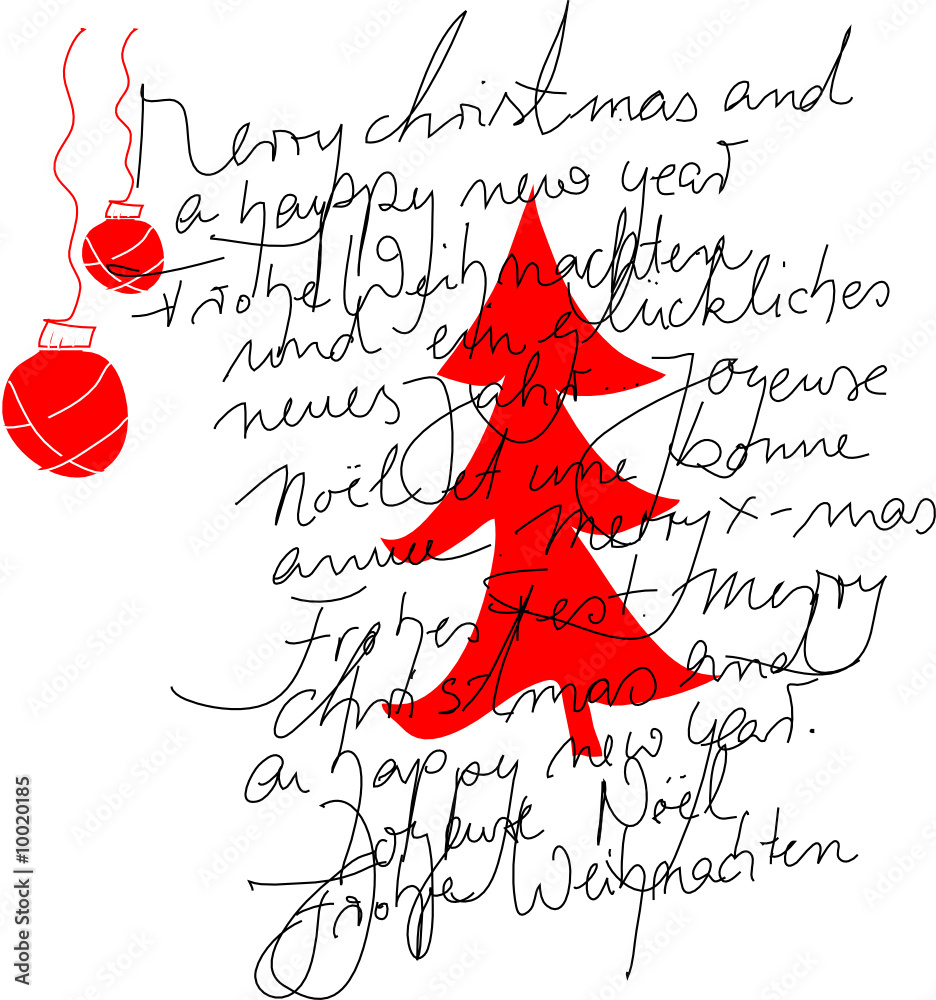 Merry christmas and
a happy new year
Frohe Weihnachten
und ein glückliches
neues Jahr... Joyeuse
Noël et une bonne
annee. Merry x-mas
Frohes Fest. Merry
christmas and
a happy new year.
Joyeuse Noël,
Frohe Weihnachten
Adobe Stock | #10020185